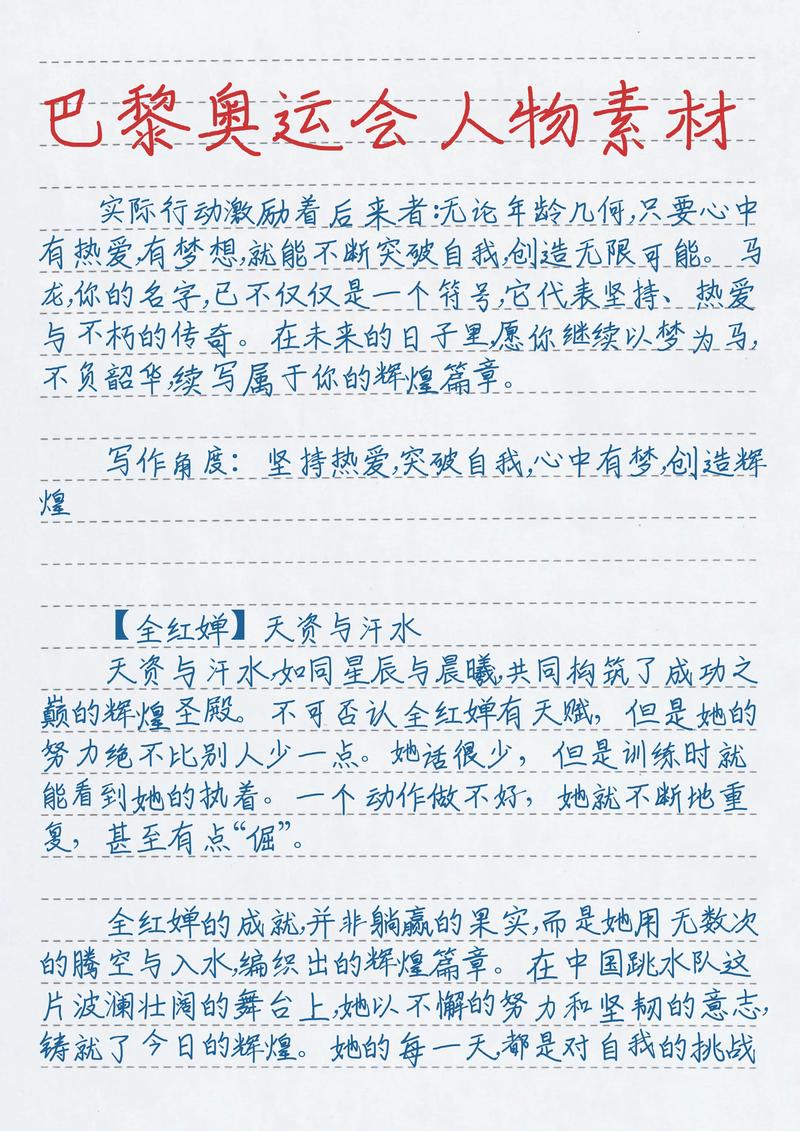 巴黎奥运会人物素材
实际行动激励着后来者:无论年龄几何,只要心中
有热爱,有梦想,就能不断突破自我,创造无限可能。马
龙,你的名字,已不仅仅是一个符号,它代表坚持、热爱
与不朽的传奇。在未来的日子里,愿你继续以梦为马,
不负韶华,续写属于你的辉煌篇章。
写作角度：坚持热爱,突破自我,心中有梦,创造辉
煌
【全红婵】天资与汗水
天资与汗水,如同星辰与晨曦,共同构筑了成功之
巅的辉煌圣殿。不可否认全红婵有天赋，但是她的
努力绝不比别人少一点。她话很少，但是训练时就
能看到她的执着。一个动作做不好，她就不断地重
复，甚至有点“倔”。
全红婵的成就,并非躺赢的果实,而是她用无数次
的腾空与入水,编织出的辉煌篇章。在中国跳水队这
片波澜壮阔的舞台上,她以不懈的努力和坚韧的意志,
铸就了今日的辉煌。她的每一天,都是对自我的挑战